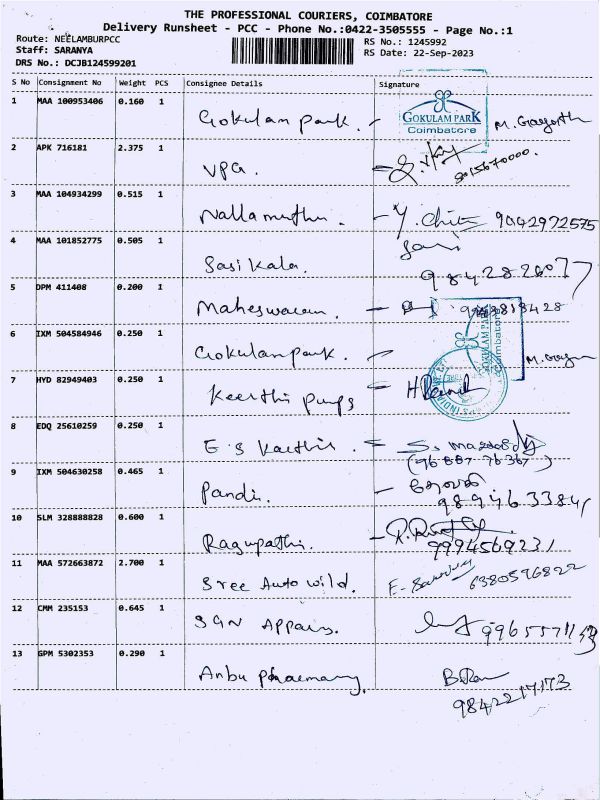 THE PROFESSIONAL COURIERS, COIMBATORE
Delivery Runsheet - PCC - Phone No.:0422-3505555 - Page No.:1
Route: NEELAMBURPCC
Staff: SARANYA
DRS No.: DCJB124599201
RS No.: 1245992
RS Date: 22-Sep-2023
S No Consignment No Weight PCS Consignee Details Signature
1 MAA 100953406 0.160 1 Gokulam park. GOKULAM PARK Coimbatore M.
2 APK 716181 2.375 1 VPG.
3 MAA 104934299 0.515 1 Nallamuthu. 9042972575
4 MAA 101852775 0.505 1 Sasikala.
5 DPM 411408 0.200 1 Maheswaran.
6 IXM 504584946 0.250 1 Gokulam park. GOKULAM PARK Coimbatore M.
7 HYD 82949403 0.250 1 Keerthi pumps
8 EDQ 25610259 0.250 1 E S Keerthi. (96887-76367)
9 IXM 504630258 0.465 1 Pandi.
10 SLM 328888828 0.600 1 Ragupathi. 9994569231
11 MAA 572663872 2.700 1 Sree Auto wild. 6380596822
12 CMM 235153 0.645 1 SGN
13 GPM 5302353 0.290 1 Anbu pharmacy.
9842217173